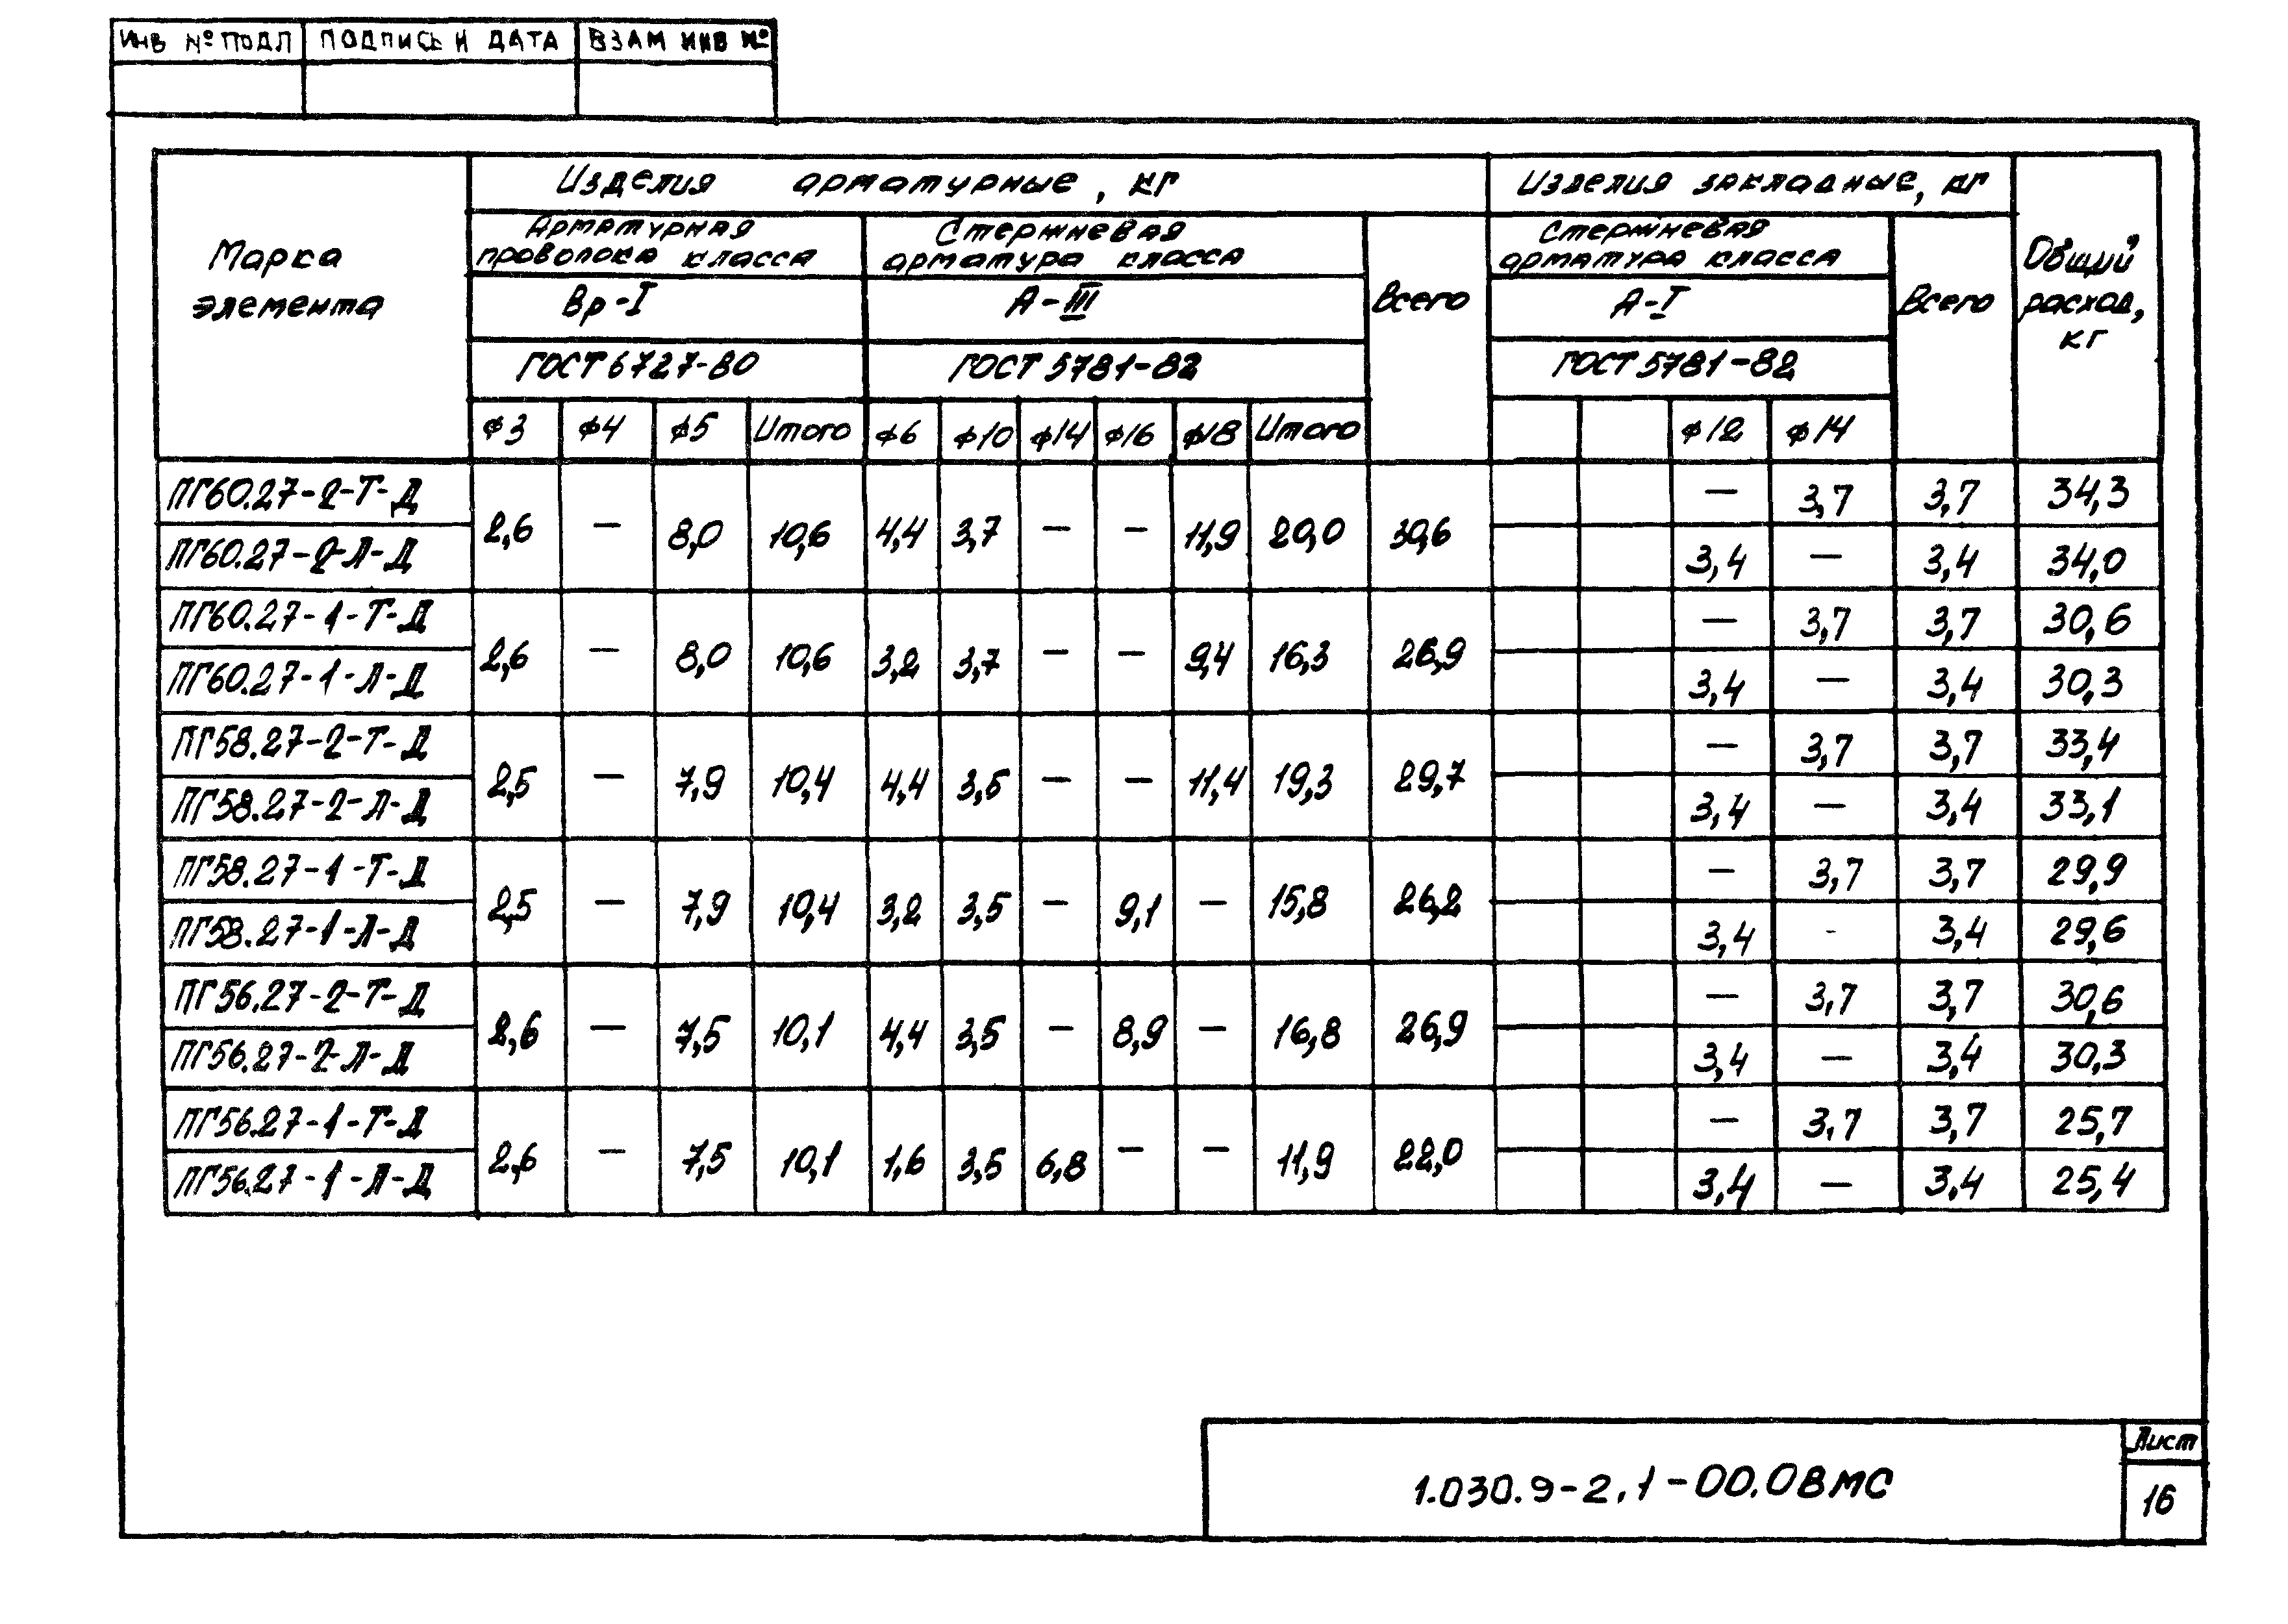 ИНВ № ПОДЛ ПОДПИСЬ И ДАТА ВЗАМ ИНВ №
Марка элемента
Изделия арматурные, кг
Изделия закладные, кг
Общий расход, кг
Арматурная проволока класса
Стержневая арматура класса
Всего
Стержневая арматура класса
Всего
Вр-I А-III А-I
ГОСТ 6727-80 ГОСТ 5781-82 ГОСТ 5781-82
ф3 ф4 ф5 Итого ф6 ф10 ф14 ф16 ф18 Итого ф12 ф14
ПГ60.27-2-Т-Д 2,6 — 8,0 10,6 4,4 3,7 — — 11,9 20,0 30,6 — 3,7 3,7 34,3
ПГ60.27-2-Л-Д 3,4 — 3,4 34,0
ПГ60.27-1-Т-Д 2,6 — 8,0 10,6 3,2 3,7 — — 9,4 16,3 26,9 — 3,7 3,7 30,6
ПГ60.27-1-Л-Д 3,4 — 3,4 30,3
ПГ58.27-2-Т-Д 2,5 — 7,9 10,4 4,4 3,5 — — 11,4 19,3 29,7 — 3,7 3,7 33,4
ПГ58.27-2-Л-Д 3,4 — 3,4 33,1
ПГ58.27-1-Т-Д 2,5 — 7,9 10,4 3,2 3,5 — 9,1 — 15,8 26,2 — 3,7 3,7 29,9
ПГ58.27-1-Л-Д 3,4 - 3,4 29,6
ПГ56.27-2-Т-Д 2,6 — 7,5 10,1 4,4 3,5 — 8,9 — 16,8 26,9 — 3,7 3,7 30,6
ПГ56.27-2-Л-Д 3,4 — 3,4 30,3
ПГ56.27-1-Т-Д 2,6 — 7,5 10,1 1,6 3,5 6,8 — — 11,9 22,0 — 3,7 3,7 25,7
ПГ56.27-1-Л-Д 3,4 — 3,4 25,4
1.030.9-2.1-00.0ВМС
Лист
16